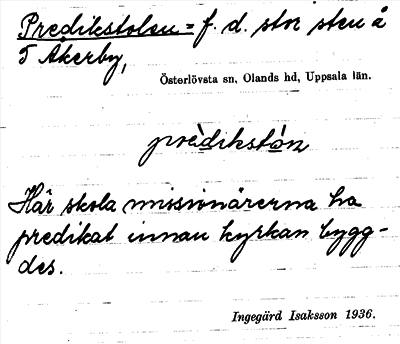 Predikstolen = f. d. stor sten å
T Åkerby,
Österlövsta sn, Olands hd, Uppsala län.
prèdikstòn
Här skola missionärerna ha
predikat innan kyrkan bygg-
des.
Ingegärd Isaksson 1936.